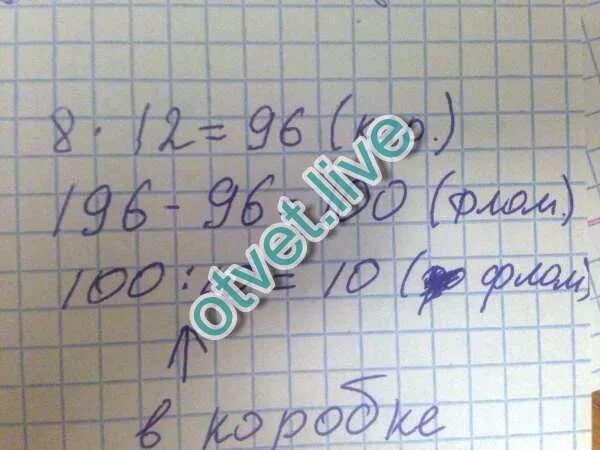 8 · 12 = 96 (
196 - 96 100 (флом.)
100 : = 10 ( флом)
в коробке
otvet.live